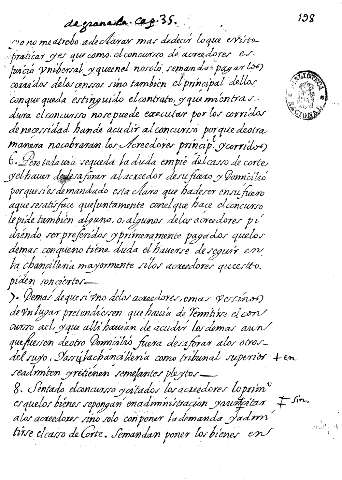 de granada. cap. 35.
198
yo no me atrebo a declarar mas de decir lo que e visto
praticar y es que como el concurso de acreedores es
juicio unibersal, y que en el no solo, se mandan pagar los
corridos de los censos sino tambien el principal dellos
con que queda estinguido el contrato, y que mientras
dura el concurso no se puede executar por los corridos
de necesidad han de acudir al concurso porque de otra
manera no cobraran los Acreedores princip. y corridos
6. Pen tada via se queda la duda en pie del caso de corte
y el haver de sacar al acreedor de su fuero y Domicilio
porque si es demandado esta claro que ha de ser en su fuero
a que se satisface que juntamente con el que hace el concurso
le pide tambien alguno, o, algunos de los acreedores pi
diendo ser preferidos y primeramente pagados que los
demas con que no tiene duda el haverse de seguir en
la chancilleria mayormente si los acreedores que esto
piden son ciertos
7. Demas de que si uno de los acreedores, o mas vesinos
de un lugar pretendiesen que havia de remitirse el con
curso a el, y que alli havian de acudir los demas aun
que fuesen de otro Domicilio fuera desaforar a los otros
del suyo, Y assi la chancilleria como tribunal superior + en
se admiten y retienen semejantes pleytos
8. Sentado el concurso y citados los acreedores lo prim
es que los bienes se pongan en administracion y no citar + sin
a los acreedores sino solo con poner la demanda y admi
tirse el caso de Corte. Se mandan poner los bienes en